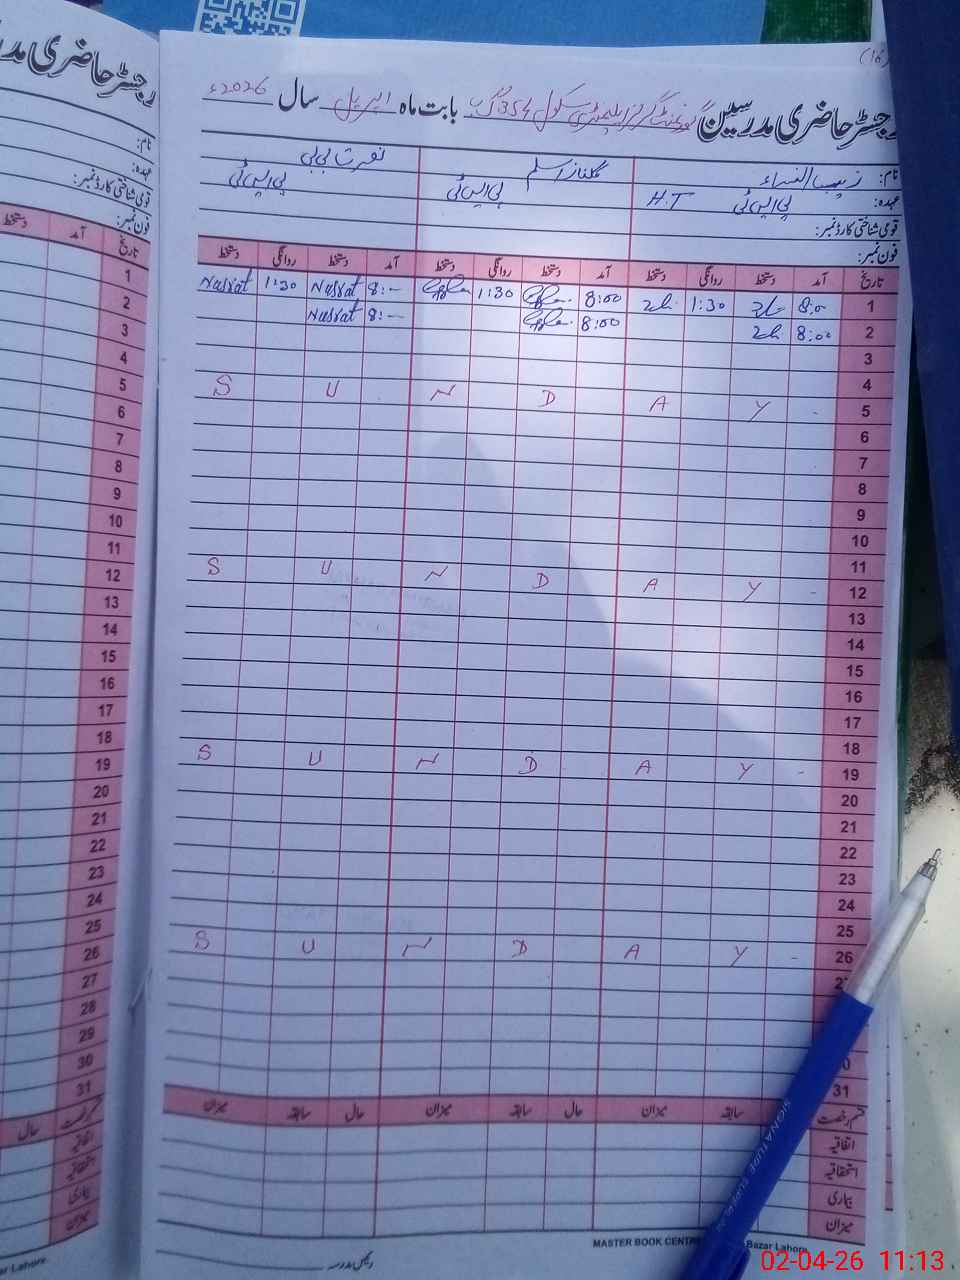 (16)
رجسٹر حاضری مدرسین گورنمنٹ گرلز ایلیمنٹری سکول 354 گ ب بابت ماہ اپریل سال 2026ء
نام: زیب النساء گلناز اسلم نصرت بی بی
عہدہ: پی ایس ٹی H.T پی ایس ٹی پی ایس ٹی
قومی شناختی کارڈ نمبر:
فون نمبر:
تاریخ آمد دستخط روانگی دستخط آمد دستخط روانگی دستخط آمد دستخط روانگی دستخط
1 8:00 1:30 8:00 1:30 8:- Nusrat 1:30 Nusrat
2 8:00 8:00 8:- Nusrat
3
4
5 S U N D A Y -
6
7
8
9
10
11
12 S U N D A Y -
13
14
15
16
17
18
19 S U N D A Y -
20
21
22
23
24
25
26 S U N D A Y -
31
قسم رخصت سابقہ میزان حال سابقہ میزان حال سابقہ میزان
اتفاقیہ
استحقاقیہ
بیماری
میزان
MASTER BOOK CENTRE Bazar Lahore
رئیس مدرسہ
رجسٹر حاضری مد
نام:
عہدہ:
قومی شناختی کارڈ نمبر:
فون نمبر:
تاریخ آمد دستخط
1
2
3
4
5
6
7
8
9
10
11
12
13
14
15
16
17
18
19
20
21
22
23
24
25
26
27
28
29
30
31
قسم رخصت حال
اتفاقیہ
استحقاقیہ
بیماری
میزان
Bazar Lahore
SIGNATURE
02-04-26 11:13